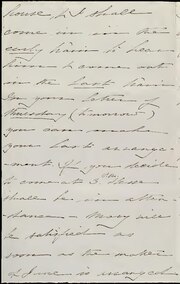 house, & I shall
come in in the
early train to hear
him & come out
in the last train
In your letter of
Thursday (tomorrow)
you can make
your last arrange-
ment. If you decide
to come at 3. these
shall be in atten-
dance — Mary will
be satisfied as
soon as the matter
of June is arranged